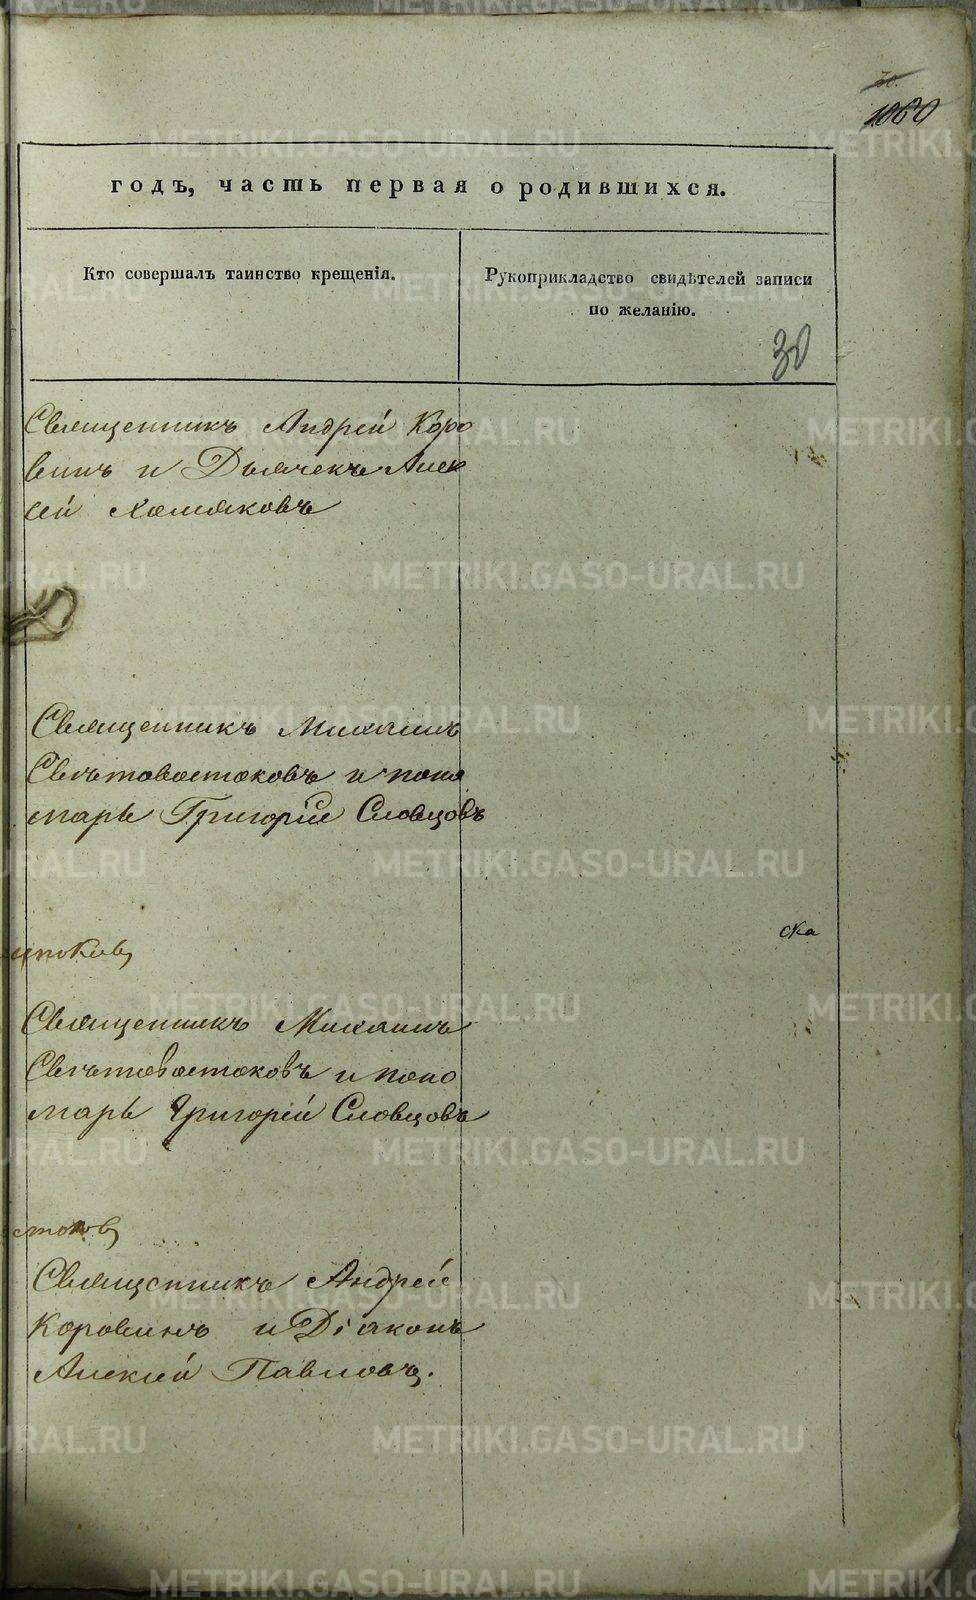 1060
годъ, часть первая о родившихся.
Кто совершалъ таинство крещенія.
Рукоприкладство свидѣтелей записи
по желанію.
30
Священникъ Андрей Коро
винъ и Дьячекъ Алек
сѣй Хомяковъ
Священникъ Михаилъ
Свѣтовостоковъ и поно
марь Григорій Словцовъ
ска
Священникъ Михаилъ
Свѣтовостоковъ и поно
марь Григорей Словцовъ
стоковъ
Священникъ Андрей
Коровинъ и Діаконъ
Алексѣй Павловъ.
METRIKI.GASO-URAL.RU